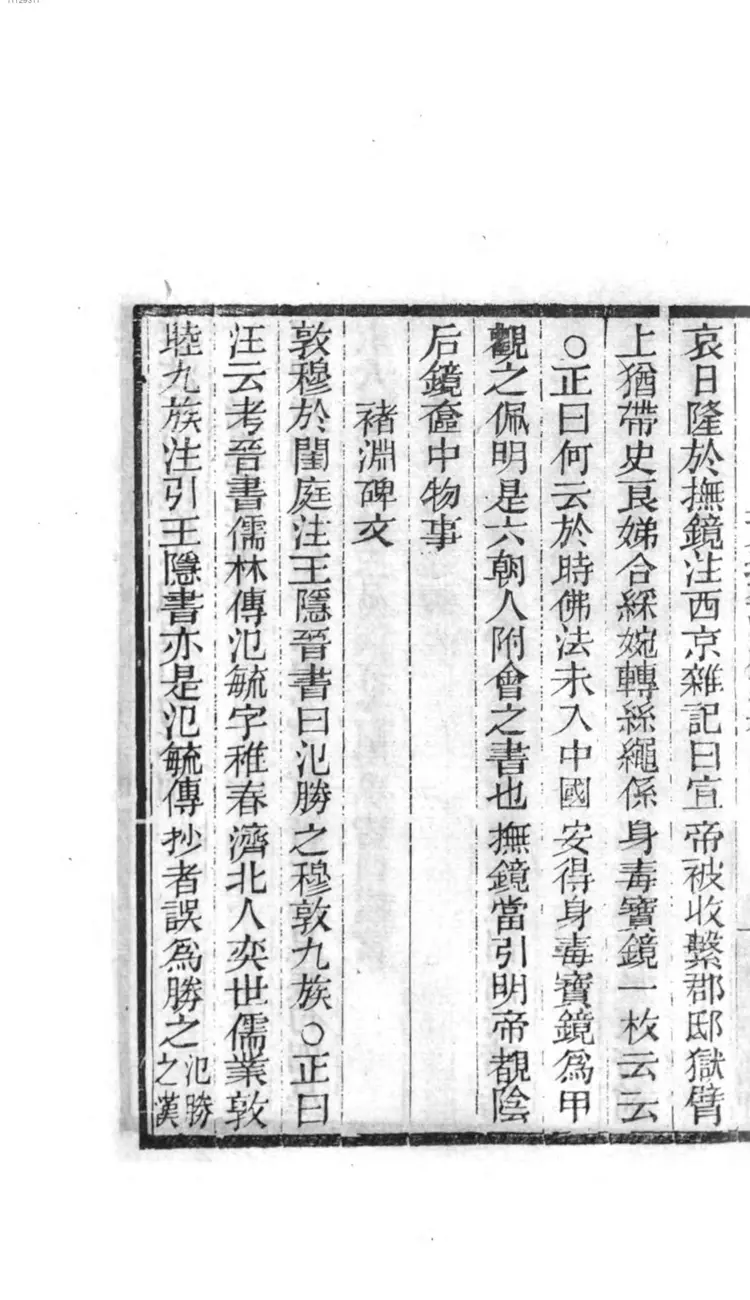 哀日隆於撫鏡注西京雜記曰宣帝被收繫郡邸獄臂
上猶帶史良娣合綵婉轉絲繩係身毒寶鏡一枚云云
○正曰何云於時佛法未入中國安得身毒寶鏡爲甲
觀之佩明是六朝人附會之書也撫鏡當引明帝覩陰
后鏡奩中物事
褚淵碑文
敦穆於閨庭注王隱晉書曰氾勝之穆敦九族○正曰
汪云考晉書儒林傳氾毓字稚春濟北人奕世儒業敦
睦九族注引王隱書亦是氾毓傳抄者誤爲勝之氾勝
之漢